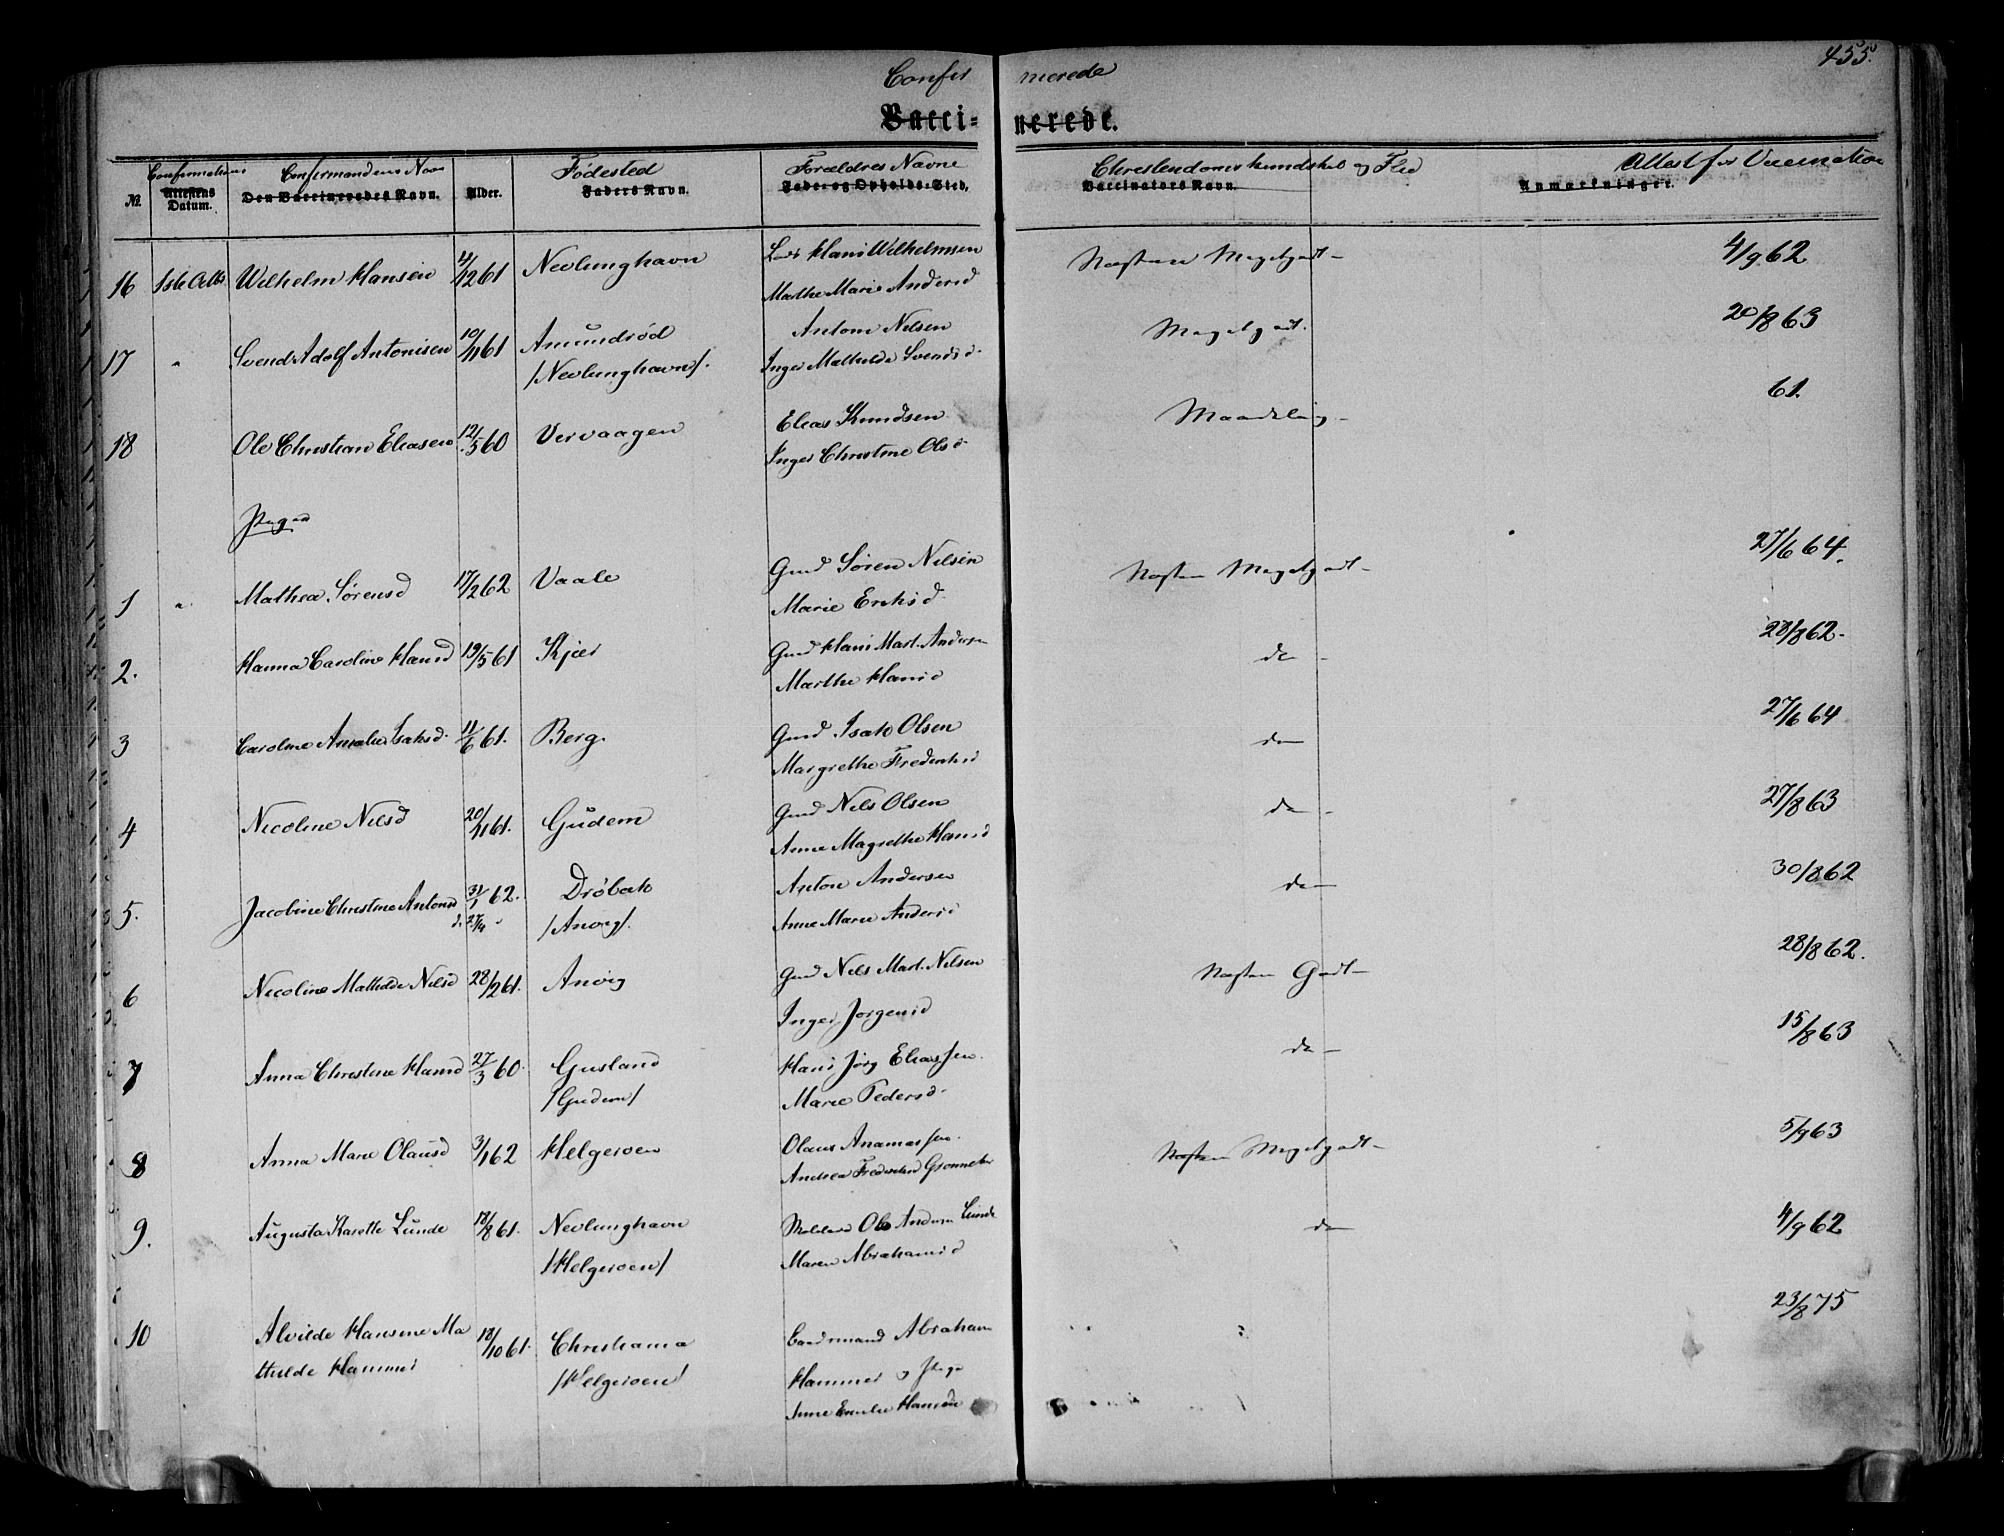 455.
Confir merede
Vacci- nerede.
Confirmations Confirmandens Navn Fødested Forældres Navne Christendomskundskab og Flid Attest for Vaccination
No. Attestens Datum. Den Vaccineredes Navn. Alder. Faders Navn. Fader og Opholds-Sted. Vaccinators Navn. Anmærkninger.
16 1ste Octbr Wilhelm Hansen 4/12 61 Nevlunghavn Lods Hans Wilhelmsen Næsten Megetgodt - 4/9 62
Marthe Marie Andersd
17 " Svend Adolf Antonisen 10/11 61 Amundrød Antoni Nilsen Megetgodt. 20/8 63
/Nevlunghavn/. Inger Mathilde Svendsd.
18 Ole Christian Eliasen 12/5 60 Vervaagen Elias Knudsen Maadelig - 61.
Inger Christine Olsd
Piger
1 " Mathea Sørensd 17/2 62 Vaale Gmd Søren Nilsen Næsten Megetgodt - 27/6 64.
Marie Eriksd.
2. Hanna Caroline Hansd 19/5 61 Kjær Gmd Hans Mart. Andersen do - 28/8 62.
Marthe Hansd
3 Caroline Amalie Isaksd. 11/6 61. Berg. Gmd Isak Olsen do 27/6 64
Margrethe Frederiksd
4 Nicoline Nilsd 20/11 61. Gudem Gmd Nils Olsen do - 27/8 63
Anne Magrethe Hansd
5. Jacobine Christine Antonsd 31/1 62. Drøbak Anton Andersen do 30/8 62
d. 27/4 " /Anvig/. Anne Marie Andersd
6 Nicoline Mathilde Nilsd 28/2 61. Anvig Gmd Nils Mart. Nilsen Næsten Godt - 28/8 62.
Inger Jørgensd
7 Anna Christine Hansd 27/3 60. Gusland Hans Jørg Eliassen. do - 15/8 63
/Gudem/ Marie Pedersd.
8 Anna Marie Olausd 3/1 62 Helgeroen Olaus Anamassen. Næsten Megetgodt - 5/9 63
Andrea Frederikke
9. Augusta Karette Lunde 18/8 61. Nevlunghavn Ole Andersen Lunde do 4/9 62
/Helgeroen/ Maren Abrahamsd
10 Alvilde Hansine Ma 18/10 61. Christiania Abraham 23/8 75
thilde Hammer /Helgeroen/ Hammer og Pige
Anne Emilie Hansen